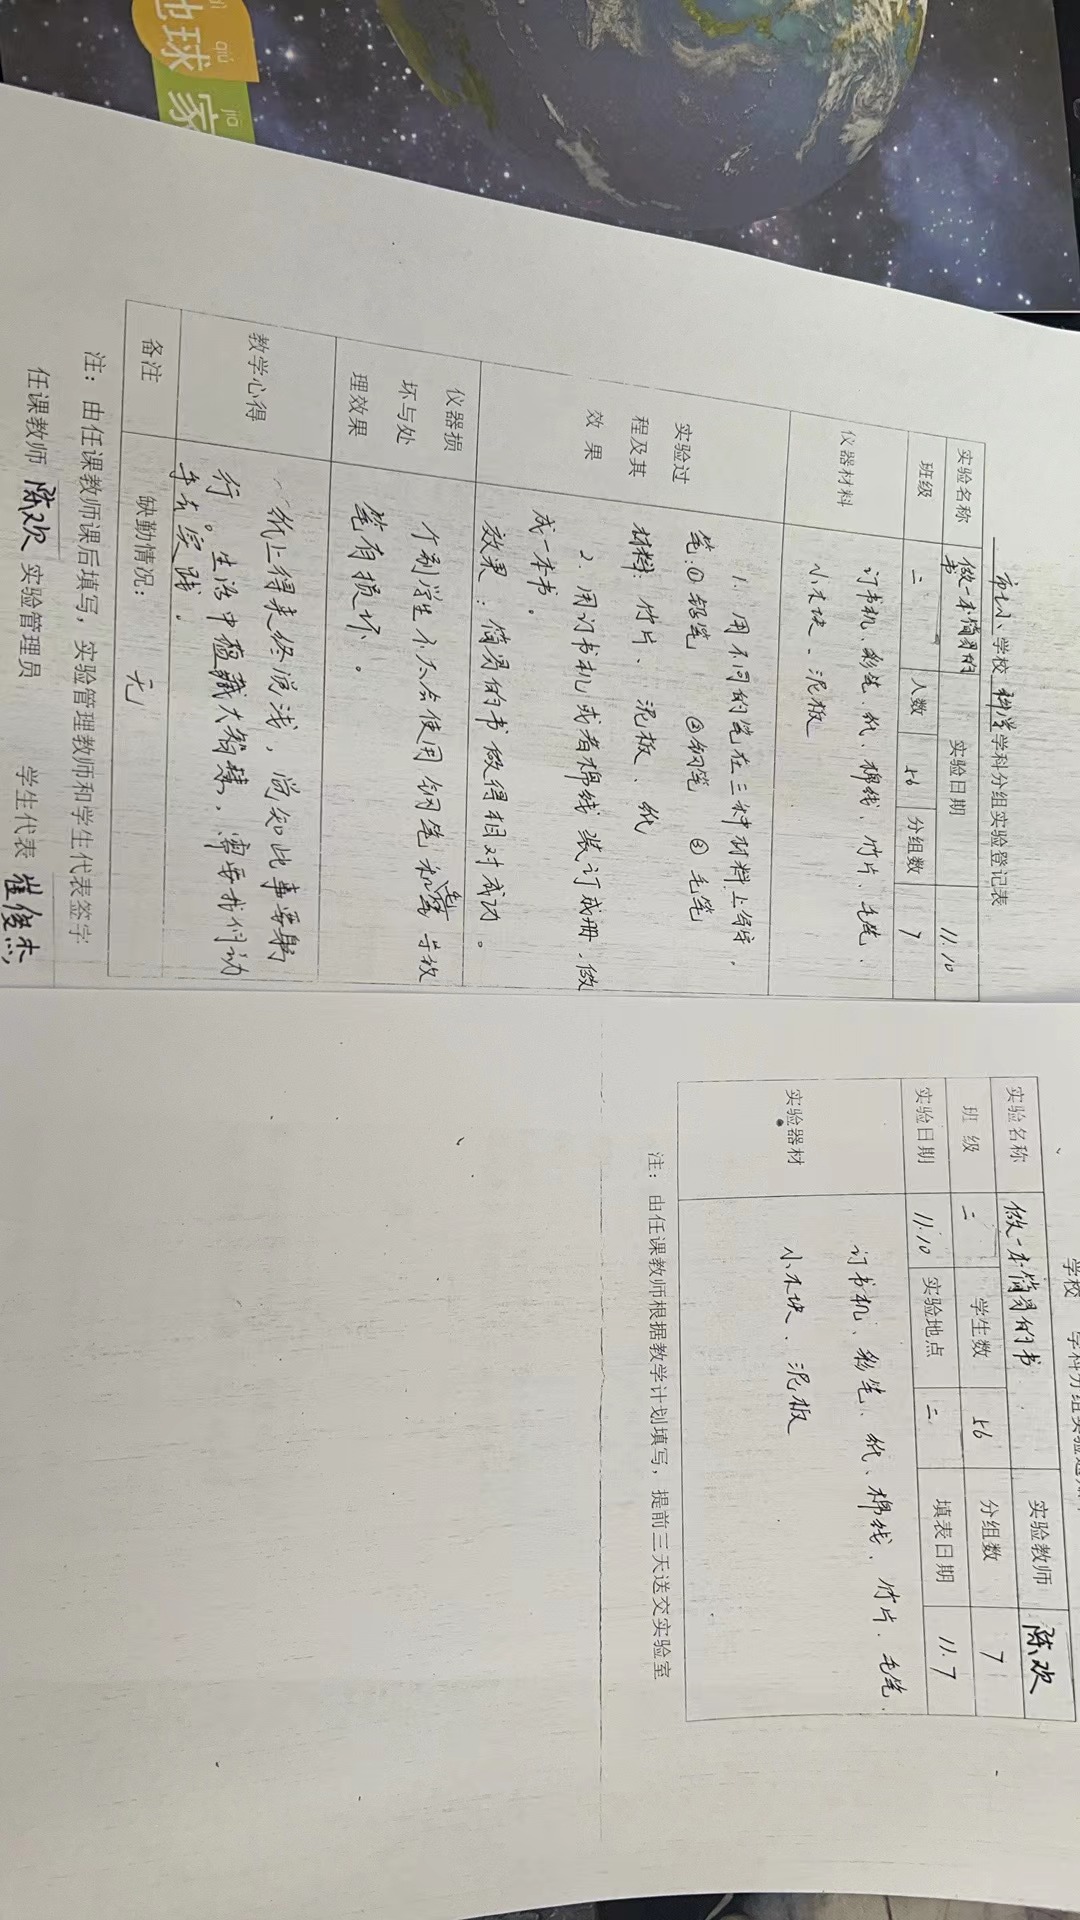 qiú
球
jiā
家
市七小 学校 科学 学科分组实验登记表
实验名称 做一本简易的书 实验日期 11.10
班级 二 人数 56 分组数 7
仪器材料 订书机、彩笔、纸、棉线、竹片、毛笔、
小木块、泥板
实验过程及其效果
1. 用不同的笔在三种材料上写字。
笔:①铅笔 ②钢笔 ③毛笔
材料:竹片、泥板、纸
2. 用订书机或者棉线装订成册、做
成一本书。
效果:简易的书做得相对成功。
仪器损坏与处理效果
个别学生不太会使用钢笔和毛笔,导致
笔有损坏。
教学心得
纸上得来终觉浅,尚知此事要躬
行。生活中蕴藏大智慧,需要我们动
手去实践。
备注 缺勤情况: 无
注:由任课教师课后填写,实验管理教师和学生代表签字
任课教师 陈欢 实验管理员 学生代表 崔俊杰
学校 学科分组实验通知
实验名称 做一本简易的书 实验教师 陈欢
班 级 二 学生数 56 分组数 7
实验日期 11.10 实验地点 二 填表日期 11.7
实验器材 订书机、彩笔、纸、棉线、竹片、毛笔、
小木块、泥板
注:由任课教师根据教学计划填写,提前三天送交实验室